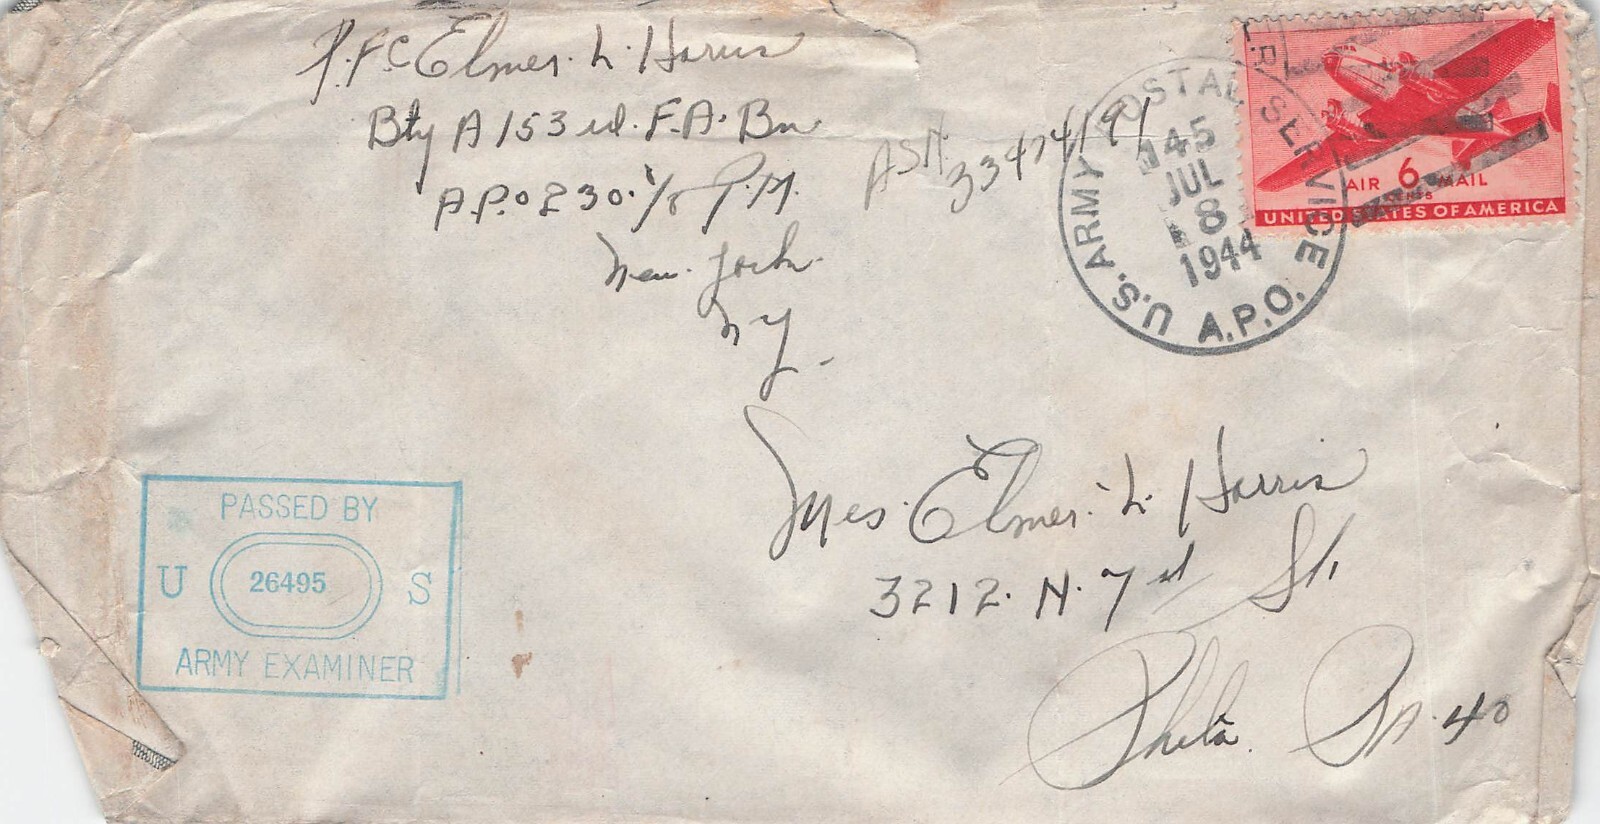 P.F.C Elmer. L. Harris
Bty A 153 rd. F.A. Bn
A.P.O 230. c/o P.M.
New. York.
N Y.
ASN. 33474191
U.S. ARMY POSTAL SERVICE
A.P.O.
45
JUL
8
1944
AIR 6 MAIL
CENTS
UNITED STATES OF AMERICA
PASSED BY
U 26495 S
ARMY EXAMINER
Mrs. Elmer. L. Harris
3212. N. 7 St.
Phila. PA. 40